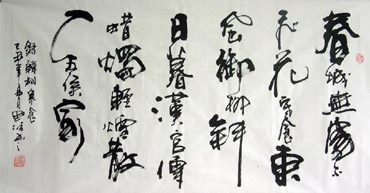 春城無處不
飛花寒食東
風御柳斜
日暮漢宮傳
蜡燭輕煙散
入五侯家
錄韓翃寒食